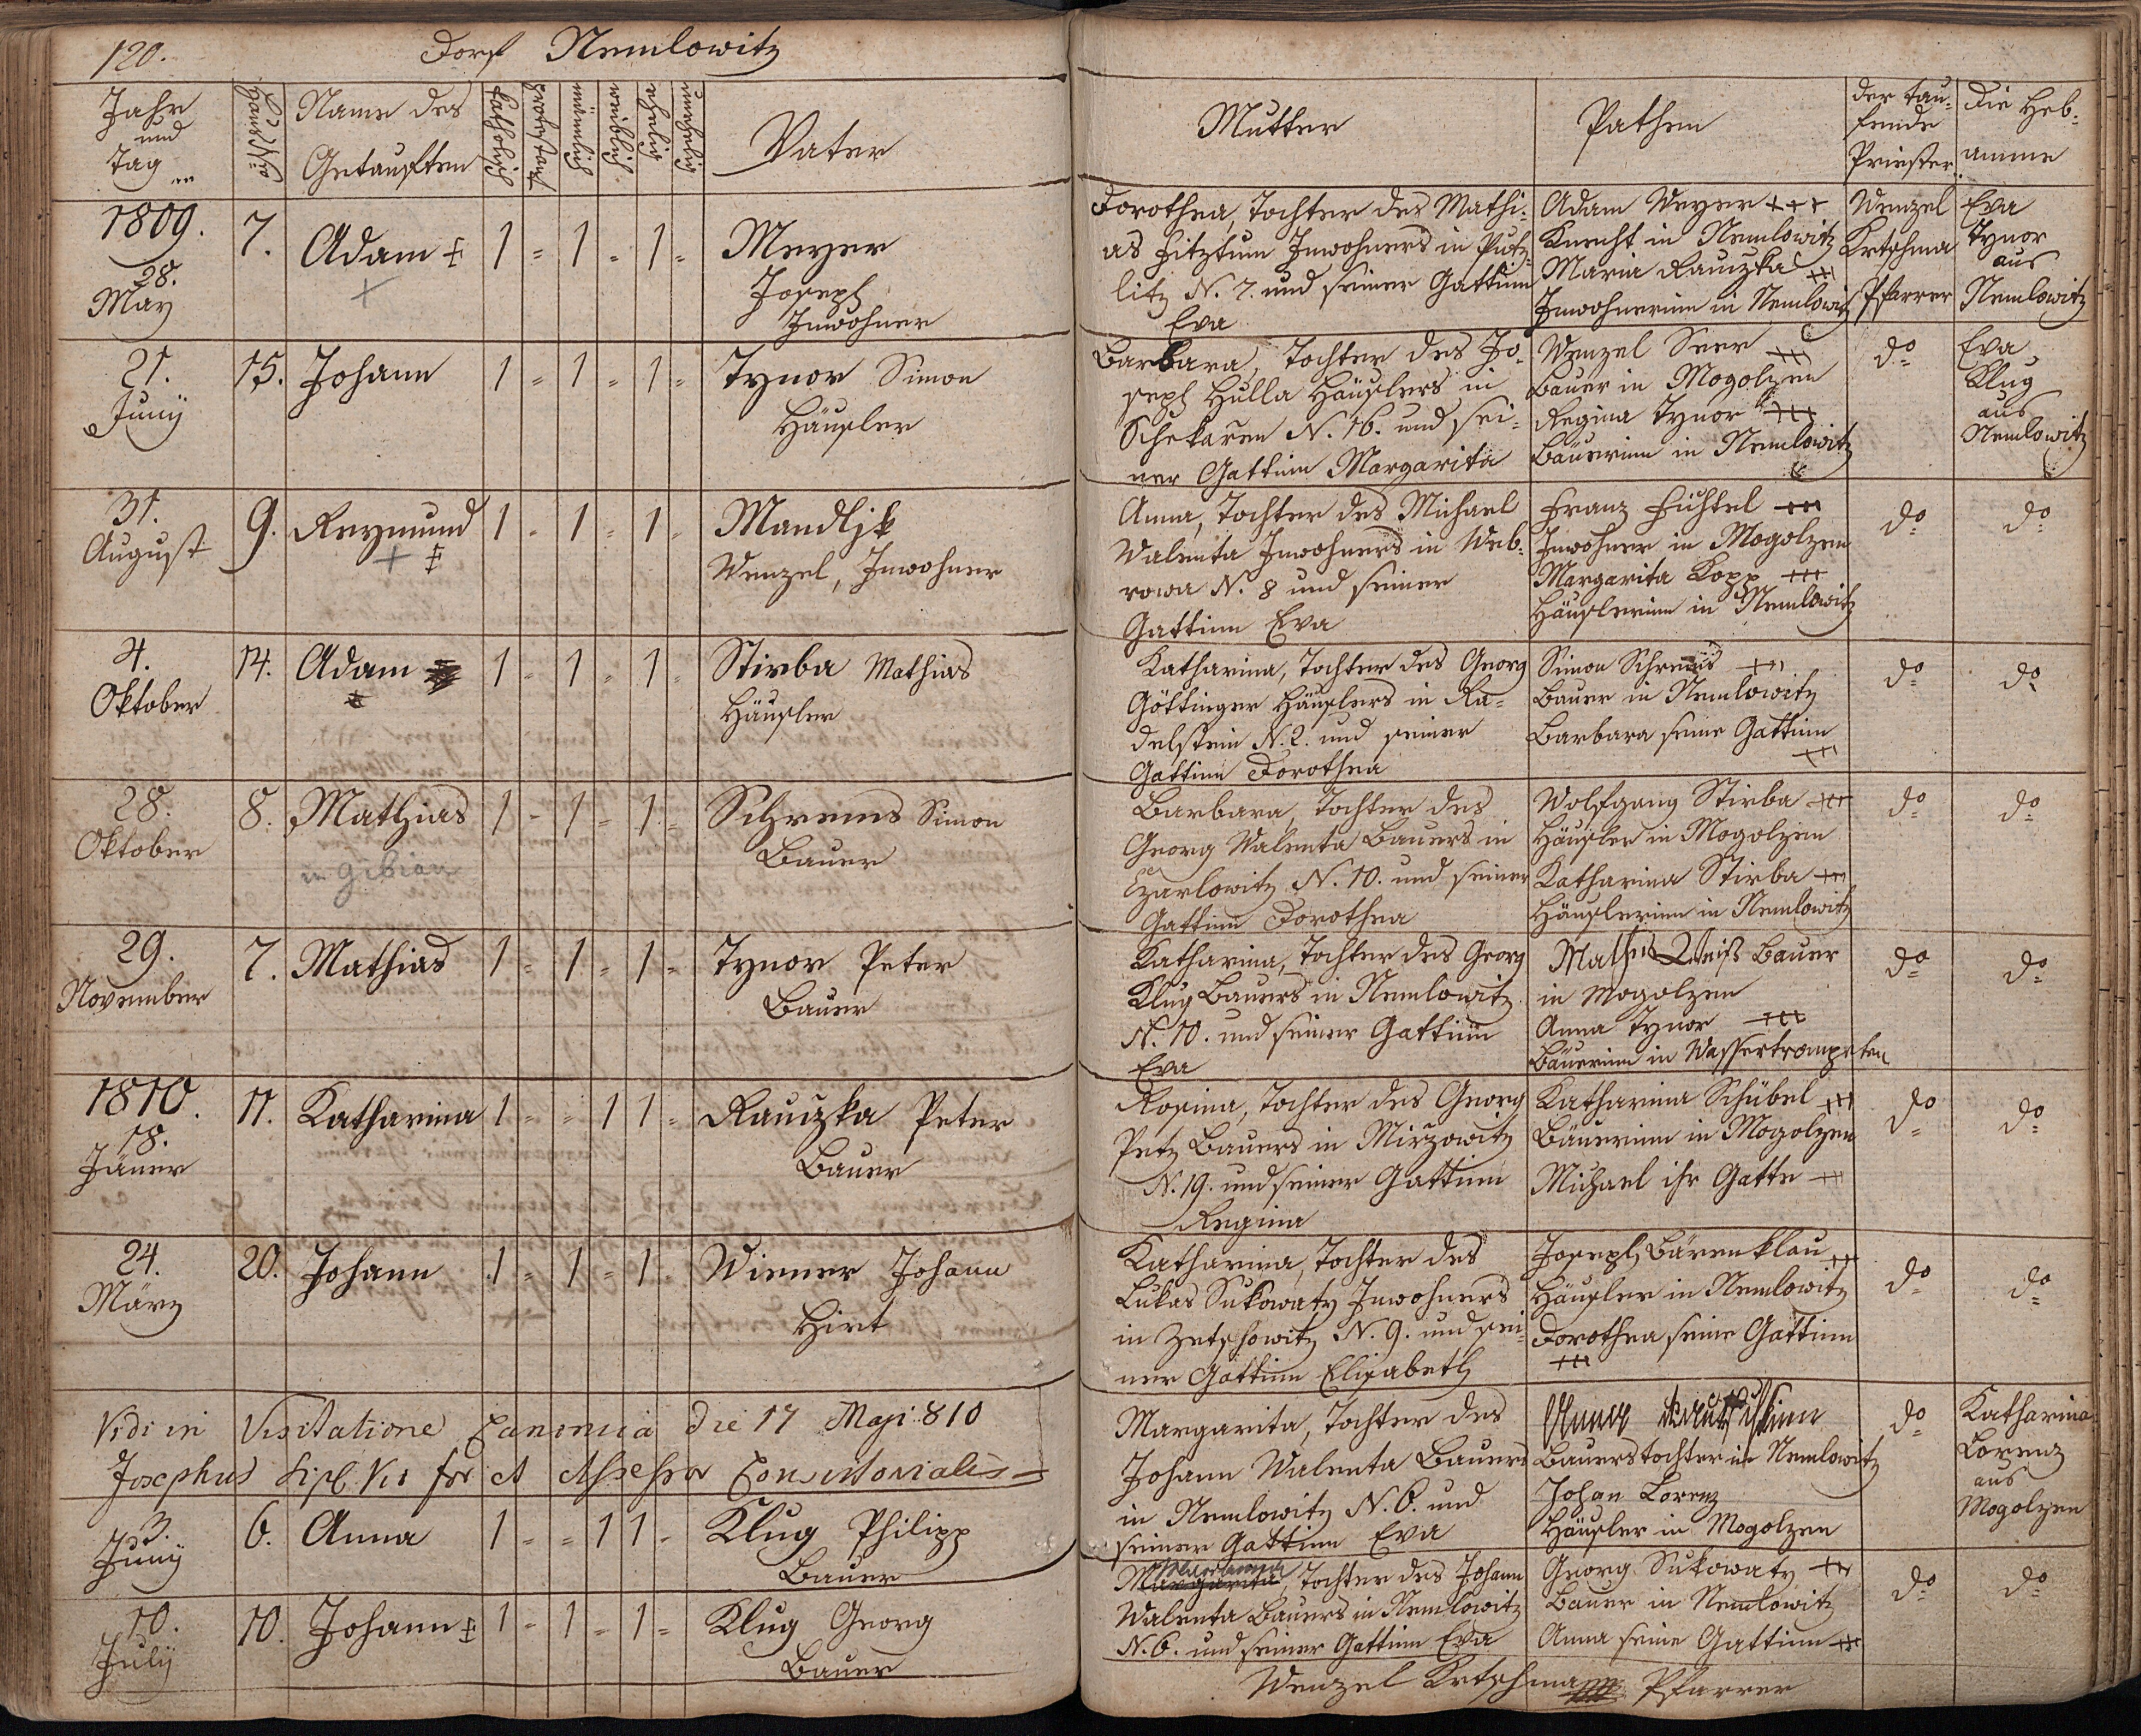 120. Dorf Nemlowitz
Jahr und Tag
Haus Nro
Name des Getauften
Katholisch
männlich
weiblich
ehelich
unehelich
Vater
Mutter
Pathen
der tau-
fende
Priester
die Heb-
amme
1809.
28.
May
7.
Adam
1 = 1 = 1 =
Meyer
Joseph
Inwohner
Dorothea, Tochter des Mathi-
as Fitztum Inwohners in Putz-
litz N. 7. und seiner Gattinn
Eva
Adam Meyer +++
Knecht in Nemlowitz
Maria Rauczka +++
Inwohnerinn in Nemlowitz
Wenzel
Krtschma
Pfarrer
Eva
Tynor
aus
Nemlowitz
21.
Juny
15.
Johann
1 = 1 = 1 =
Tynor Simon
Häusler
Barbara, Tochter des Jo-
seph Hulla Häuslers in
Schekaren N. 16. und sei-
ner Gattinn Margarita
Wenzel Seer +++
Bauer in Mogolzen
Regina Tynor +++
Bäuerinn in Nemlowitz
do
Eva
Klug
aus
Nemlowitz
31.
August
9.
Reymund
1 = 1 = 1 =
Mandljk
Wenzel, Inwohner
Anna, Tochter des Michael
Walenta Inwohners in Web-
rowa N. 8 und seiner
Gattinn Eva
Franz Fichtel +++
Inwohner in Mogolzen
Margarita Kopp +++
Häuslerinn in Nemlowitz
do
do
4.
Oktober
14.
Adam
1 = 1 = 1 =
Stirba Mathias
Häusler
Katharina, Tochter des Georg
Göttinger Häuslers in Ra-
delstein N. 2. und seiner
Gattinn Dorothea
Simon Schrems +++
Bauer in Nemlowitz
Barbara seine Gattinn
+++
do
do
28.
Oktober
8.
Mathias
1 = 1 = 1 =
Schrems Simon
Bauer
Barbara, Tochter des
Georg Walenta Bauers in
Czarlowitz N. 10. und seiner
Gattinn Dorothea
Wolfgang Stirba +++
Häusler in Mogolzen
Katharina Stirba +++
Häuslerinn in Nemlowitz
do
do
29.
November
7.
Mathias
1 = 1 = 1 =
Tynor Peter
Bauer
Katharina, Tochter des Georg
Klug Bauers in Nemlowitz
N. 10. und seiner Gattinn
Eva
Mathis Weiß Bauer
in Mogolzen
Anna Tynor +++
Bäuerinn in Wassertrompeten
do
do
1810.
18.
Jäner
11.
Katharina
1 = = 1 1 =
Rauczka Peter
Bauer
Rosina, Tochter des Georg
Petz Bauers in Mirzowitz
N. 19. und seiner Gattinn
Regina
Katharina Schübel +++
Bäuerinn in Mogolzen
Michael ihr Gatte +++
do
do
24.
März
20.
Johann
1 = 1 = 1 =
Wiener Johann
Hirt
Katharina, Tochter des
Lukas Sukowaty Inwohners
in Zetschowitz N. 9. und sei-
ner Gattinn Elisabeth
Joseph Bärenklau +++
Häusler in Nemlowitz
Dorothea seine Gattinn
+++
do
do
Vidi in Visitatione Canonica die 17 Maji 810
Josephus et Assessor Consistorialis
3.
Juny
6.
Anna
1 = = 1 1 =
Klug Philipp
Bauer
Margarita, Tochter des
Johann Walenta Bauers
in Nemlowitz N. 6. und
seiner Gattinn Eva
Anna
Bauerstochter in Nemlowitz
Johan Lorenz
Häusler in Mogolzen
do
Katharina
Lorenz
aus
Mogolzen
10.
July
10.
Johann
1 = 1 = 1 =
Klug Georg
Bauer
Margarita, Tochter des Johann
Walenta Bauers in Nemlowitz
N. 6. und seiner Gattinn Eva
Georg Sukowaty +++
Bauer in Nemlowitz
Anna seine Gattinn +++
do
do
Wenzel Krtschma Pfarrer